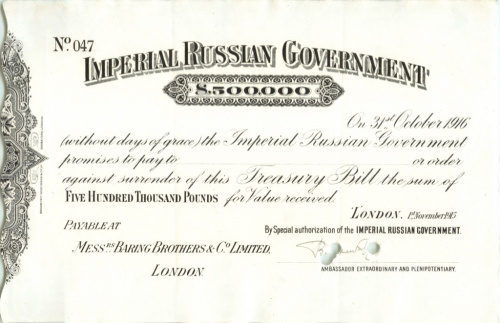 Nº 047
IMPERIAL RUSSIAN GOVERNMENT
£.500.000
On 31st October 1916
(without days of grace) the Imperial Russian Government
promises to pay to or order
against surrender of this Treasury Bill the sum of
FIVE HUNDRED THOUSAND POUNDS for Value received.
LONDON, 1st November 1915
PAYABLE AT
By Special authorization of the IMPERIAL RUSSIAN GOVERNMENT.
MESSRS BARING BROTHERS & Cº LIMITED,
LONDON.
AMBASSADOR EXTRAORDINARY AND PLENIPOTENTIARY.